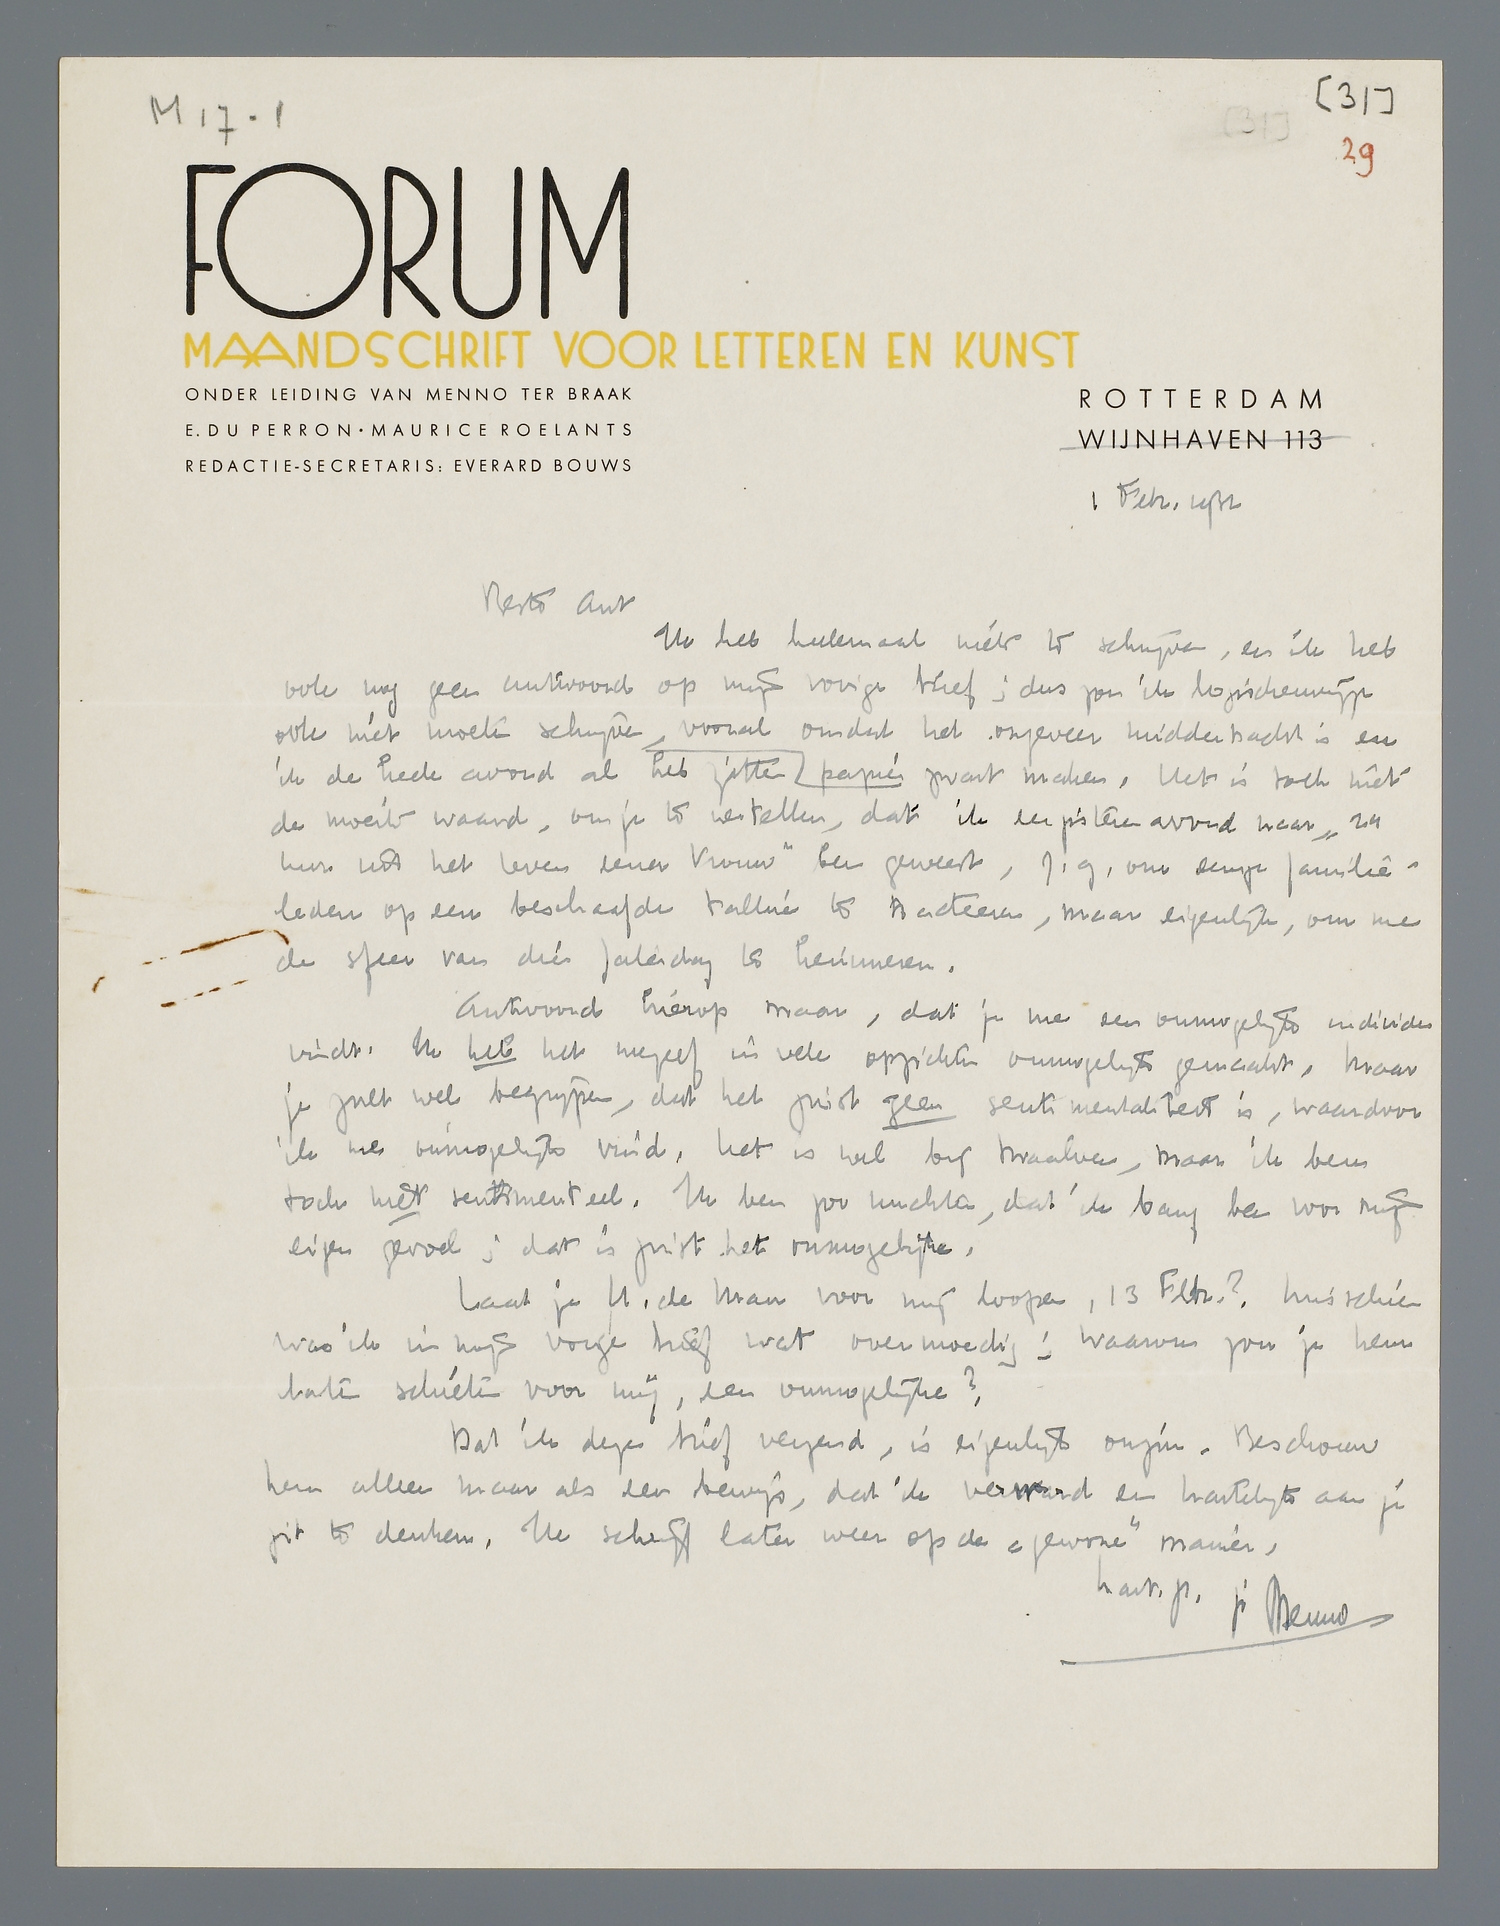 M 17.1
[31]
[31]
29
FORUM
MAANDSCHRIFT VOOR LETTEREN EN KUNST
ONDER LEIDING VAN MENNO TER BRAAK
E. DU PERRON · MAURICE ROELANTS
REDACTIE-SECRETARIS: EVERARD BOUWS
ROTTERDAM
WIJNHAVEN 113
1 Febr. 1932
Beste Ant
Ik heb heelemaal niets te schrijven, en ik heb
ook nog geen antwoord op mijn vorige brief; dus zou ik logischerwijze
ook niet moeten schrijven, vooral omdat het ongeveer middernacht is en
ik de heele avond al heb zitten papier zwart maken. Het is toch niet
de moeite waard, om je te vertellen, dat ik eergisteren avond naar „24
uur uit het leven eener vrouw" ben geweest, z.g. om eenige familie-
leden op een beschaafde talkie te tracteeren, maar eigenlijk, om me
de sfeer van dien Zaterdag te herinneren.
Antwoord hierop maar, dat je me een onmogelijk individu
vindt. Ik heb het mezelf in vele opzichten onmogelijk gemaakt. Maar
je zult wel begrijpen, dat het juist geen sentimentaliteit is, waardoor
ik me onmogelijk vind. Het is wel erg, maar ik ben
toch niet sentimenteel. Ik ben zoo nuchter, dat ik bang ben voor mijn
eigen gevoel; dat is juist het onmogelijke.
Laat je H. de Man voor mij loopen, 13 Febr.? Misschien
was ik in mijn vorige brief wat overmoedig; waarom zou je hem
laten schieten voor mij, een onmogelijke?
Dat ik deze brief verzend, is eigenlijk onzin. Beschouw
hem alleen maar als een bewijs, dat ik verward en hartelijk aan je
zit te denken. Ik schrijf later weer op de „gewone" manier.
hart. gr. je Menno